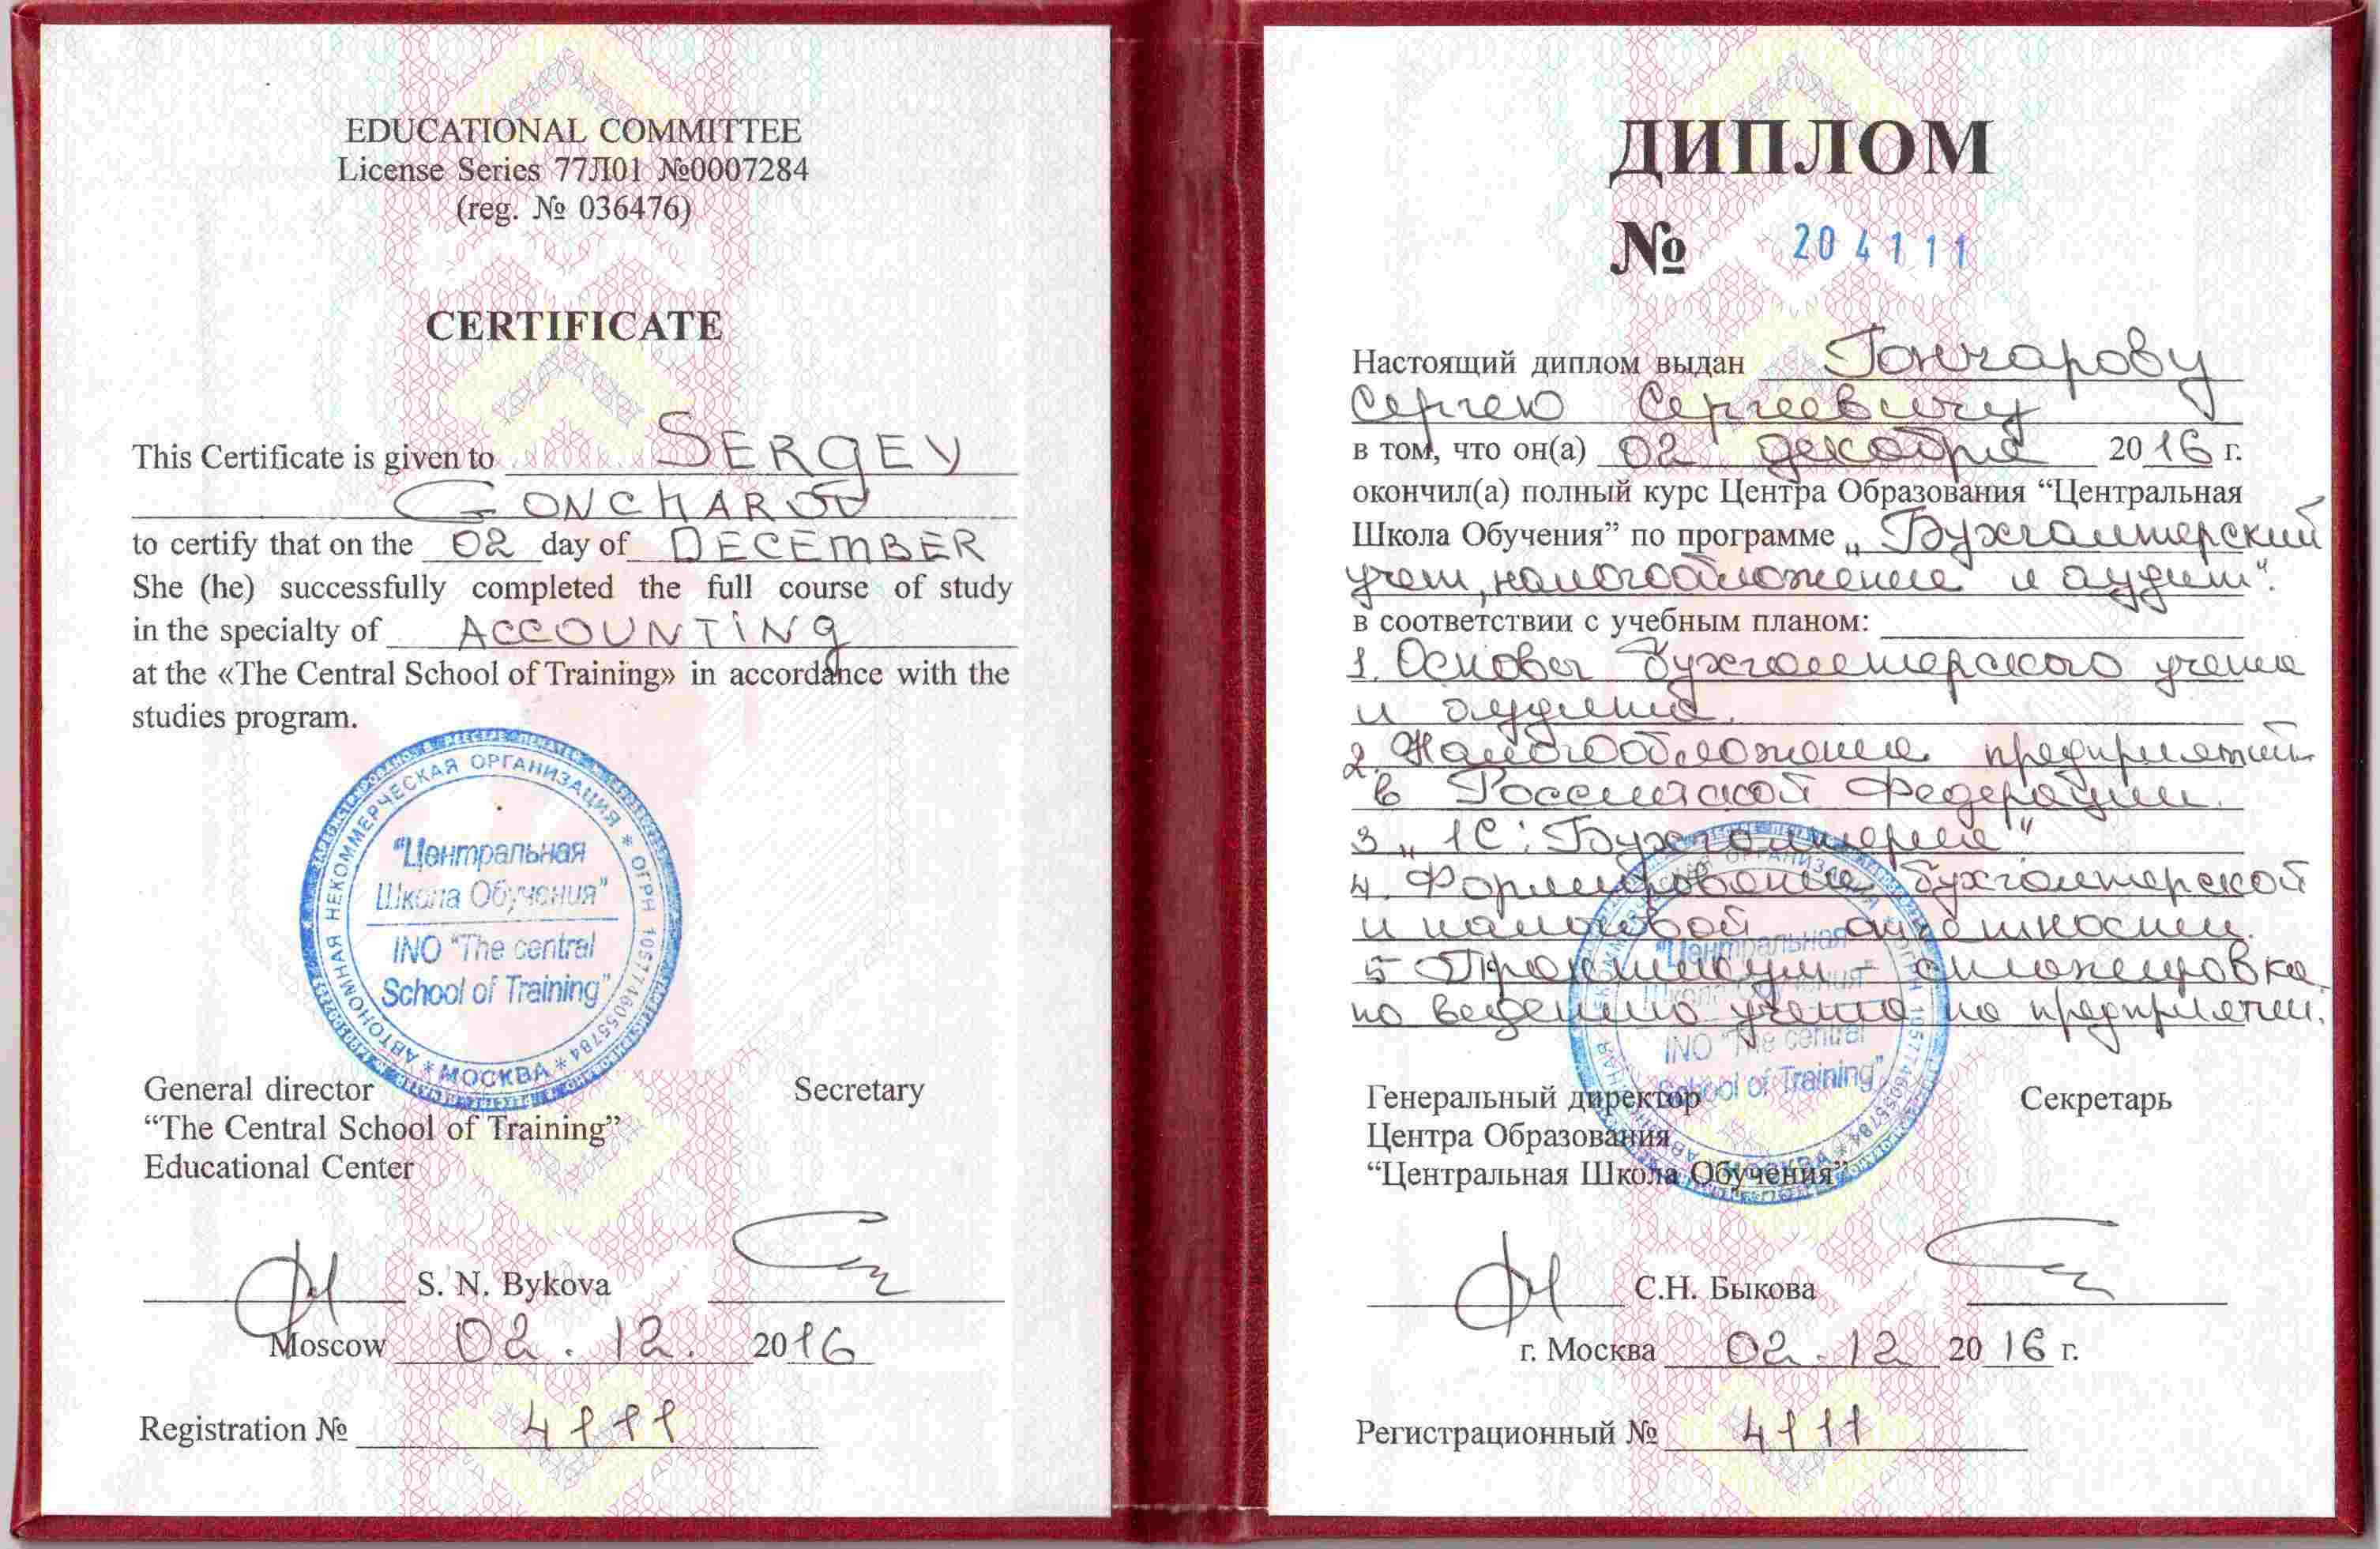 EDUCATIONAL COMMITTEE
License Series 77Л01 №0007284
(reg. № 036476)
CERTIFICATE
This Certificate is given to SERGEY
GONCHAROV
to certify that on the 02 day of DECEMBER
She (he) successfully completed the full course of study
in the specialty of ACCOUNTING
at the «The Central School of Training» in accordance with the
studies program.
АВТОНОМНАЯ НЕКОММЕРЧЕСКАЯ ОРГАНИЗАЦИЯ * ОГРН 1057746055784 * МОСКВА *
"Центральная
Школа Обучения"
INO "The central
School of Training"
General director
"The Central School of Training"
Educational Center
Secretary
S. N. Bykova
Moscow 02. 12. 2016
Registration № 4111
ДИПЛОМ
№ 204111
Настоящий диплом выдан Гончарову
Сергею Сергеевичу
в том, что он(а) 02 декабря 2016 г.
окончил(а) полный курс Центра Образования "Центральная
Школа Обучения" по программе „Бухгалтерский
учет, налогообложение и аудит".
в соответствии с учебным планом:
1. Основы бухгалтерского учета
и аудита.
2. Налогообложение предприятий
в Российской Федерации.
3 „1С: Бухгалтерия"
4. Формирование бухгалтерской
и налоговой отчетности.
5 Практикум - стажировка
по ведению учета на предприятии.
"Центральная
Школа Обучения"
INO "The central
School of Training"
Генеральный директор
Центра Образования
"Центральная Школа Обучения"
Секретарь
С.Н. Быкова
г. Москва 02. 12 2016 г.
Регистрационный № 4111